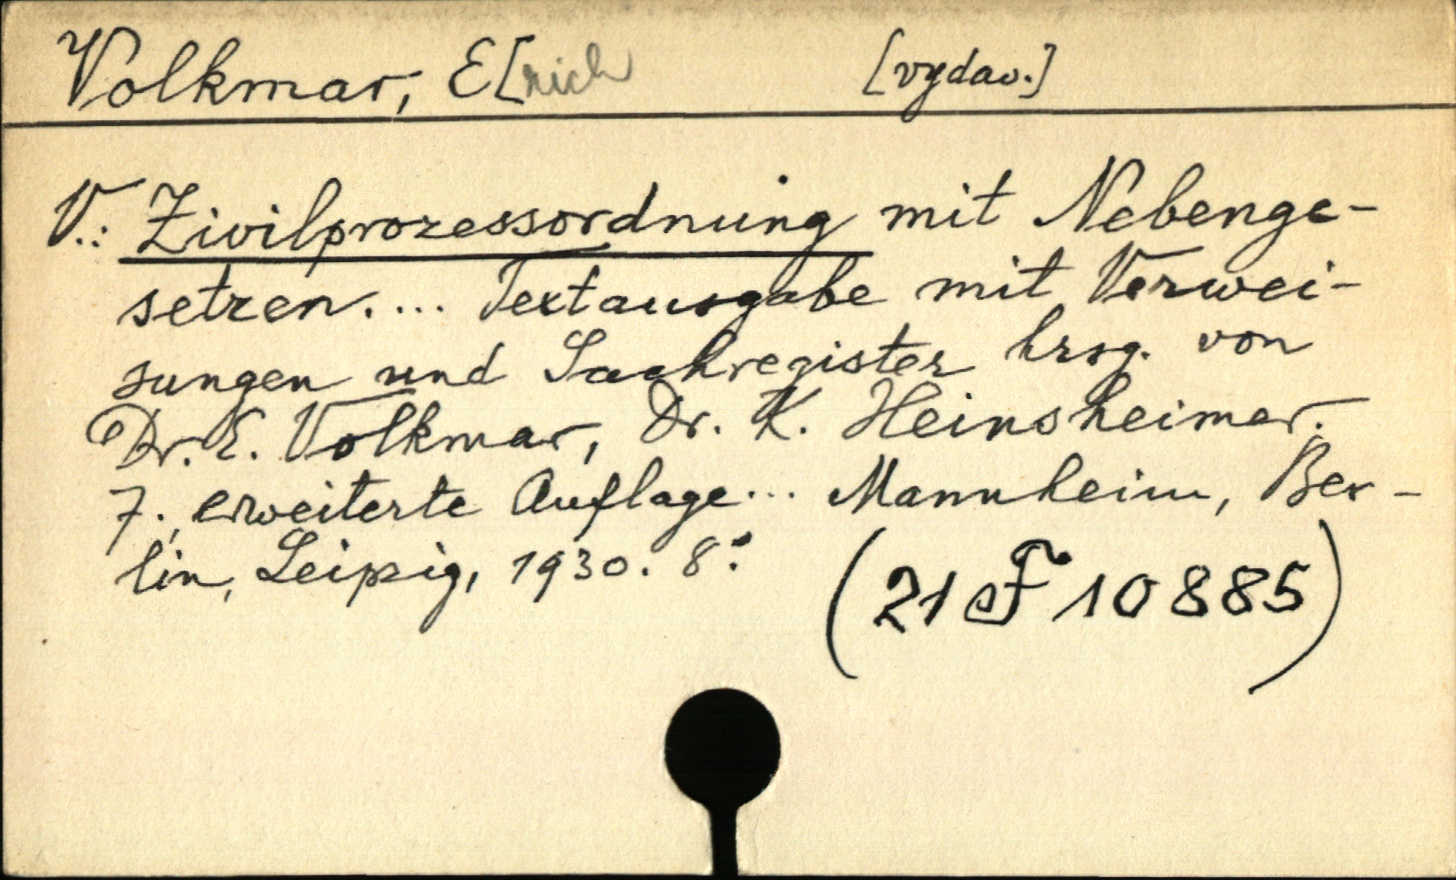 Volkmar, E[rich [vydav.]
V.: Zivilprozessordnung mit Nebenge-
setzen.... Textausgabe mit Verwei-
sungen und Sachregister hrsg. von
Dr. E. Volkmar, Dr. K. Heinsheimer.
7., erweiterte Auflage... Mannheim, Ber-
lin, Leipzig, 1930. 8°.
(21 F 10885)